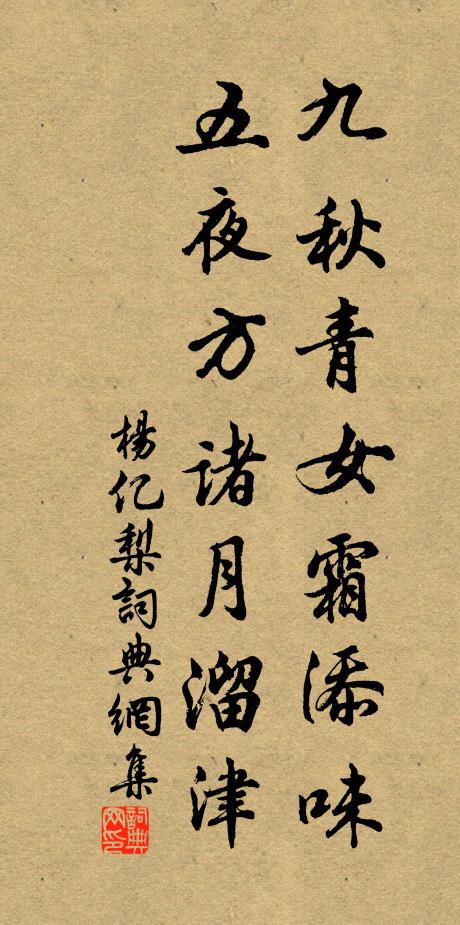 九秋青女霜添味
五夜方诸月溜津
楊亿梨詞典網集
詞典网印